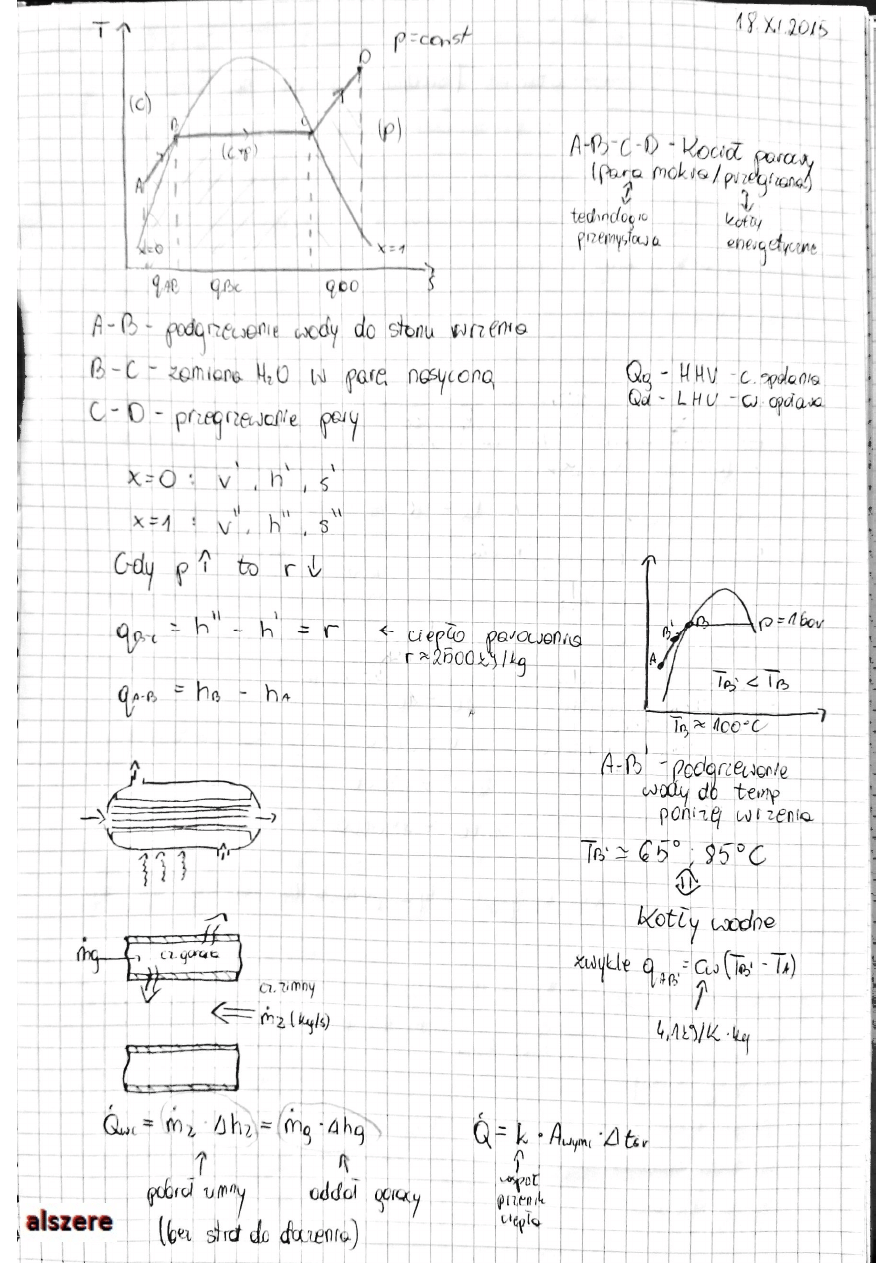 18.XI.2015
T
p=const
D
(C)
B
C
(p)
(c+p)
A
x=0
x=1
s
qAB qBC qCD
A-B-C-D - Kocioł parowy
(para mokra/przegrzana)
technologia
przemysłowa
kotły
energetyczne
A-B - podgrzewanie wody do stanu wrzenia
B-C - zamiana H₂O w parę nasyconą
C-D - przegrzewanie pary
Qg - HHV - c. spalania
Qd - LHV - w. opałowa
x=0 : v', h', s'
x=1 : v", h", s"
Gdy p↑ to r↓
qB-C = h" - h' = r ← ciepło parowania
r≈2500 kJ/kg
qA-B = hB - hA
B'
B
p=1bar
A
TB' < TB
TB ≈ 100°C
A-B' - podgrzewanie
wody do temp
poniżej wrzenia
TB' ≃ 65°; 85°C
Kotły wodne
zwykle qAB' = cw(TB' - TA)
4,1kJ/K·kg
ṁg
cz. gorący
cz. zimny
ṁz (kg/s)
Q̇wc = ṁz · Δhz = ṁg · Δhg
pobrał zimny
oddał gorący
(bez strat do otoczenia)
Q̇ = k · Awymi · Δtśr
współ
przenik
ciepła
alszere